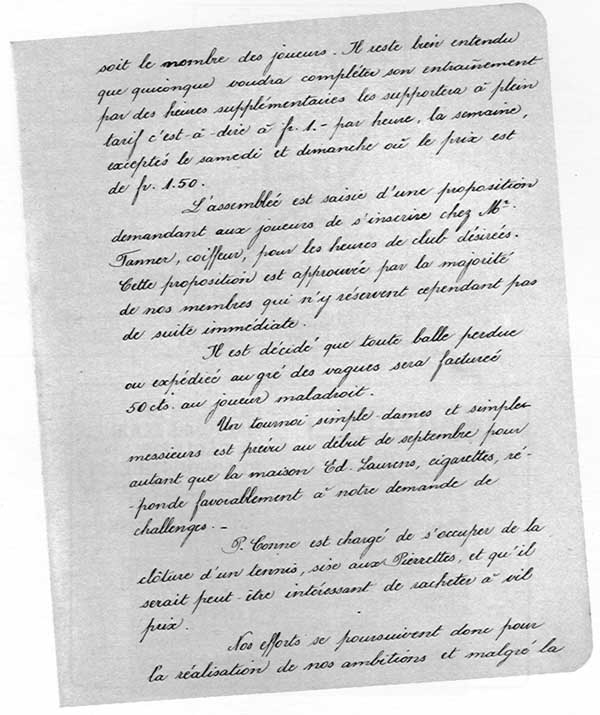 soit le nombre des joueurs. Il reste bien entendu
que quiconque voudra compléter son entraînement
par des heures supplémentaires les supportera à plein
tarif c'est-à-dire à fr. 1.- par heure, la semaine,
exceptés le samedi et dimanche où le prix est
de fr. 1.50.
L'assemblée est saisie d'une proposition
demandant aux joueurs de s'inscrire chez Mr.
Tanner, coiffeur, pour les heures de club désirées.
Cette proposition est approuvée par la majorité
de nos membres qui n'y réservent cependant pas
de suite immédiate.
Il est décidé que toute balle perdue
ou expédiée au gré des vagues sera facturée
50 cts. au joueur maladroit.
Un tournoi simple-dames et simple-
messieurs est prévu au début de septembre pour
autant que la maison Ed. Laurens, cigarettes, ré-
-ponde favorablement à notre demande de
challenges. -
P. Conne est chargé de s'occuper de la
clôture d'un tennis, sise aux Pierrettes, et qu'il
serait peut-être intéressant de racheter à vil
prix.
Nos efforts se poursuivent donc pour
la réalisation de nos ambitions et malgré la